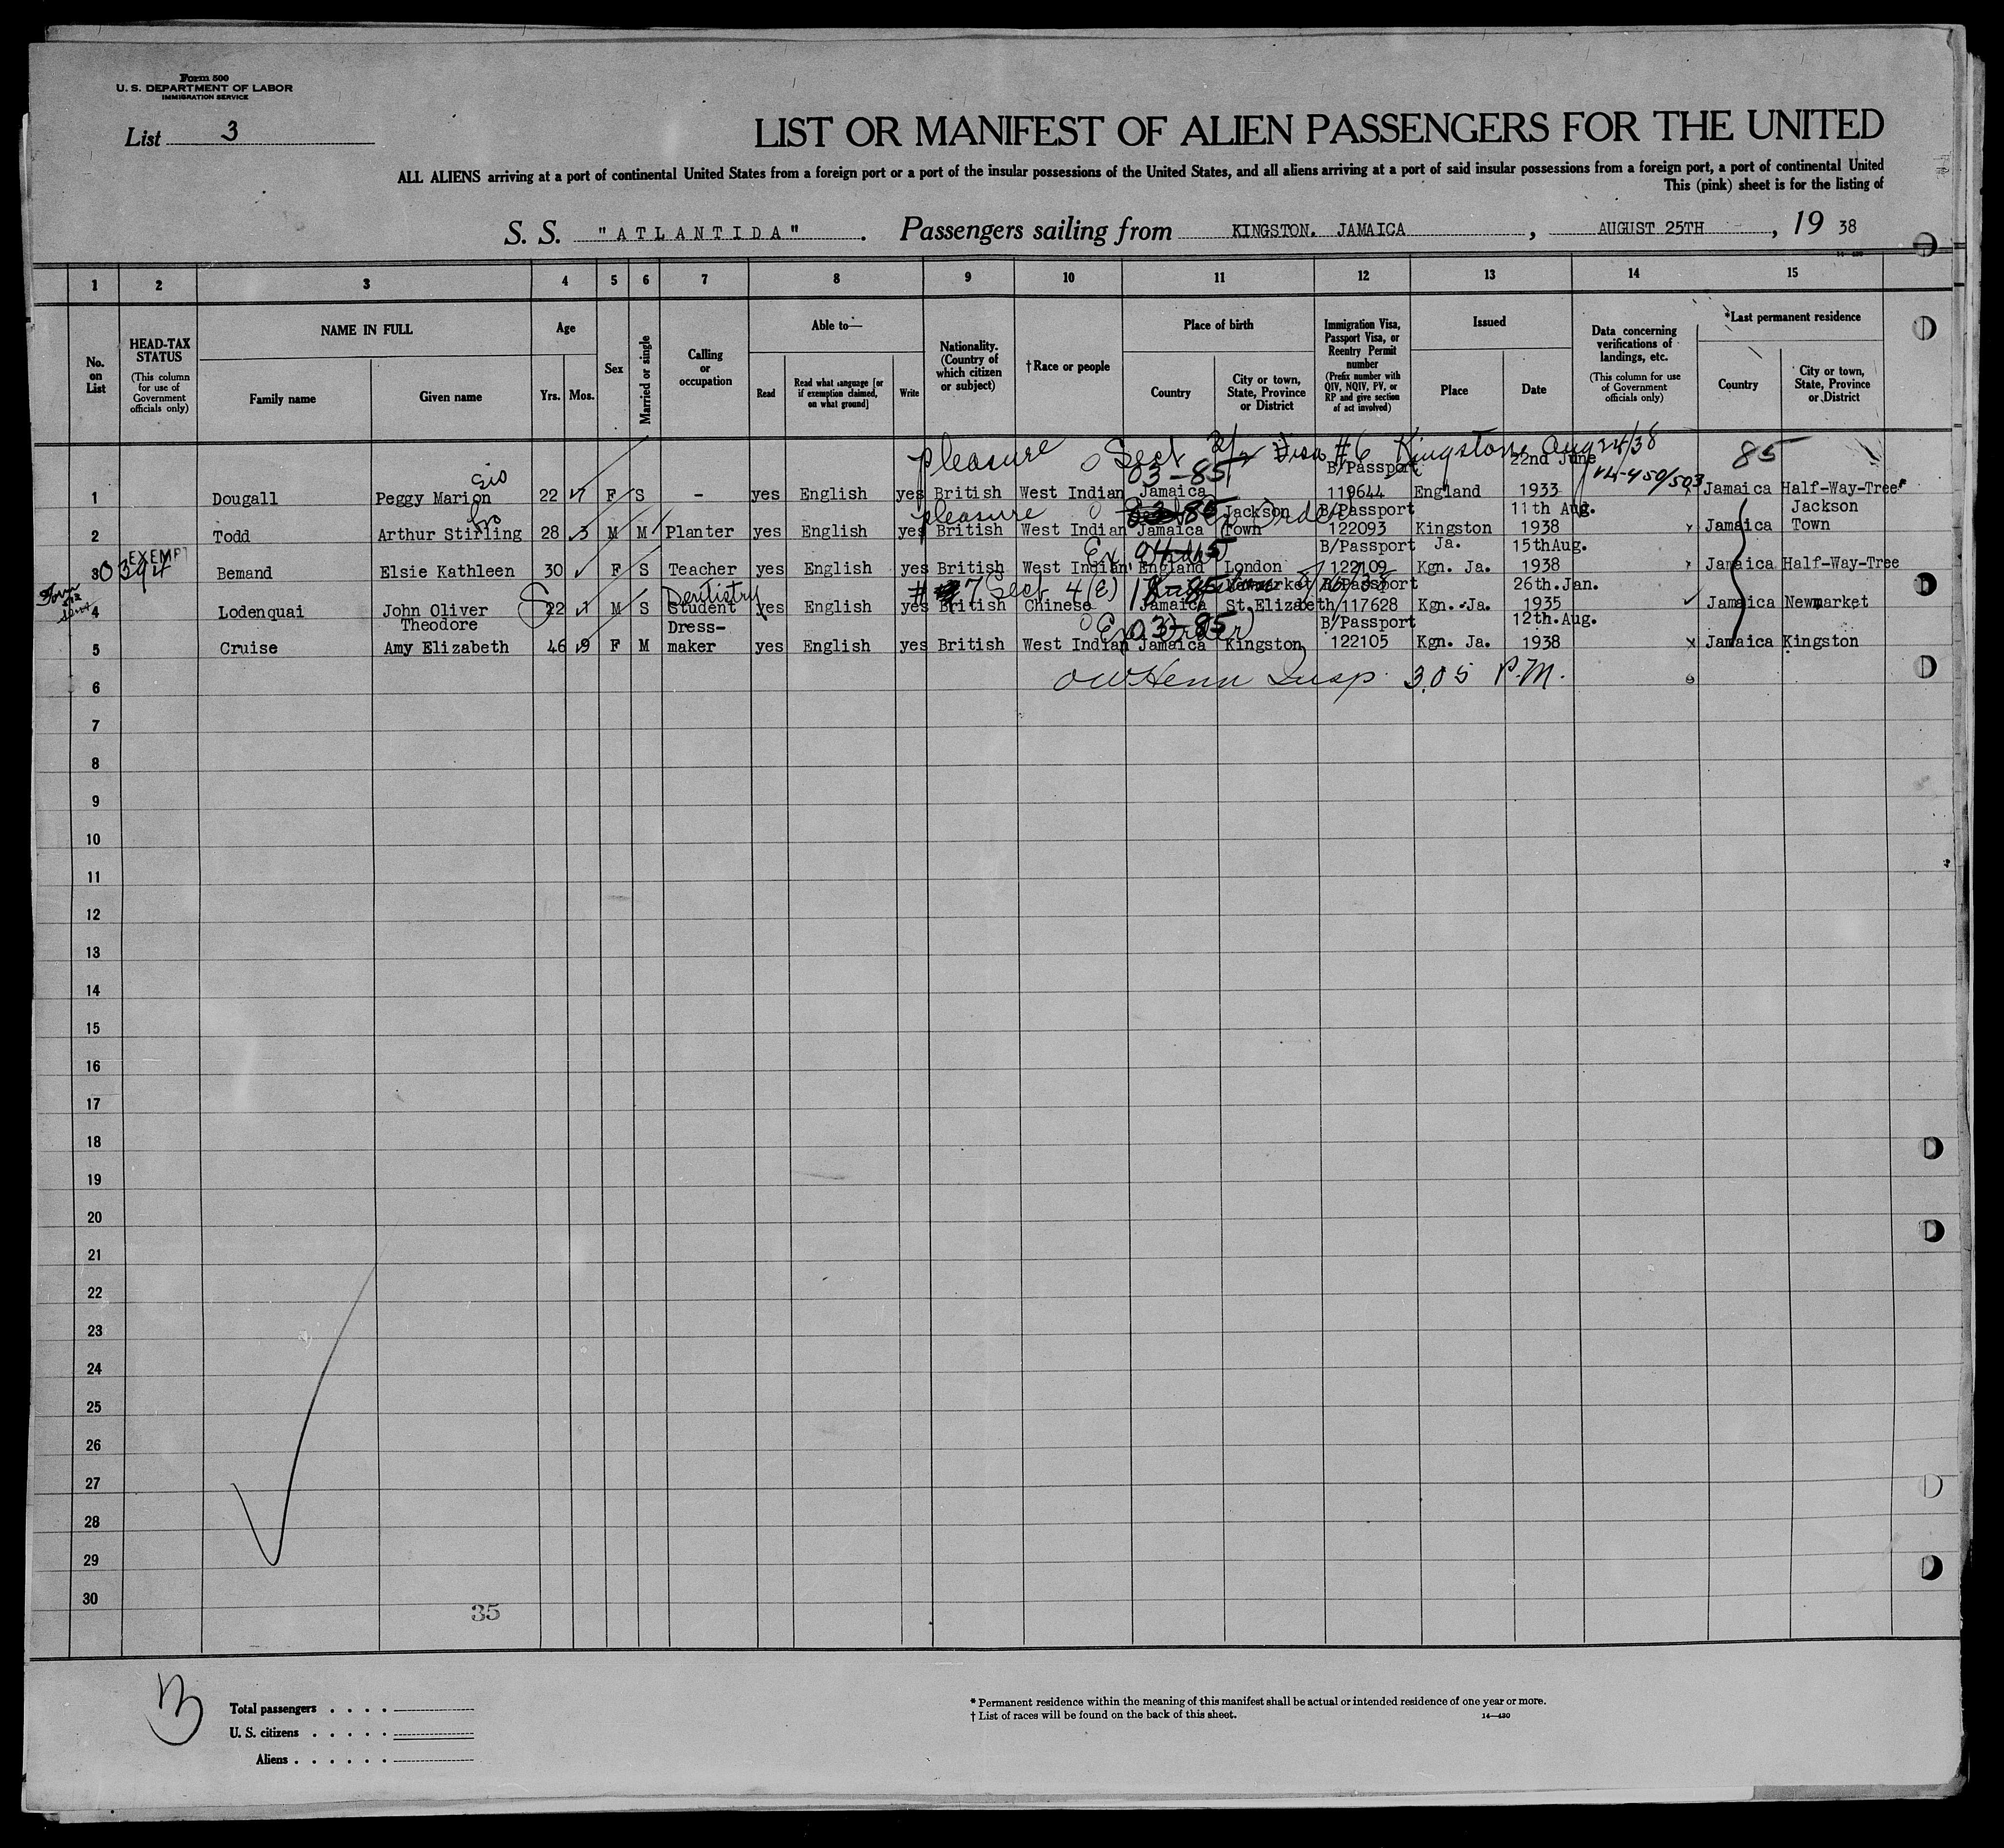 Form 500
U. S. DEPARTMENT OF LABOR
IMMIGRATION SERVICE
List 3
LIST OR MANIFEST OF ALIEN PASSENGERS FOR THE UNITED
ALL ALIENS arriving at a port of continental United States from a foreign port or a port of the insular possessions of the United States, and all aliens arriving at a port of said insular possessions from a foreign port, a port of continental United
This (pink) sheet is for the listing of
S. S. "ATLANTIDA" . Passengers sailing from KINGSTON. JAMAICA , AUGUST 25TH , 19 38
1 2 3 4 5 6 7 8 9 10 11 12 13 14 15
No. on List
HEAD-TAX STATUS
(This column for use of Government officials only)
NAME IN FULL
Family name Given name
Age
Yrs. Mos.
Sex
Married or single
Calling or occupation
Able to—
Read
Read what language [or if exemption claimed, on what ground]
Write
Nationality. (Country of which citizen or subject)
† Race or people
Place of birth
Country
City or town, State, Province or District
Immigration Visa, Passport Visa, or Reentry Permit number
(Prefix number with QIV, NQIV, PV, or RP and give section of act involved)
Issued
Place Date
Data concerning verifications of landings, etc.
(This column for use of Government officials only)
*Last permanent residence
Country
City or town, State, Province or District
pleasure Sect 3/2 Visa #6 Kingston Aug 24/38 85
03-85 B/Passport 22nd June
1 Dougall Peggy Marion 22 7 F S - yes English yes British West Indian Jamaica 119644 England 1933 Jamaica Half-Way-Tree
pleasure Jackson B/Passport 11th Aug. Jackson
2 Todd Arthur Stirling 28 3 M M Planter yes English yes British West Indian Jamaica Town 122093 Kingston 1938 Jamaica Town
EXEMPT B/Passport Ja. 15thAug.
3 Bemand Elsie Kathleen 30 F S Teacher yes English yes British West Indian England London 122109 Kgn. Ja. 1938 Jamaica Half-Way-Tree
Dentistry #7 Sect 4(E) Newmarket B/Passport 26th.Jan.
4 Lodenquai John Oliver 22 M S Student yes English yes British Chinese Jamaica St.Elizabeth 117628 Kgn. Ja. 1935 Jamaica Newmarket
Theodore Dress- 03-85 B/Passport 12th.Aug.
5 Cruise Amy Elizabeth 46 9 F M maker yes English yes British West Indian Jamaica Kingston 122105 Kgn. Ja. 1938 Jamaica Kingston
6 Insp. 3.05 P.M.
7
8
9
10
11
12
13
14
15
16
17
18
19
20
21
22
23
24
25
26
27
28
29
30
35
Total passengers . . . .
U. S. citizens . . . . .
Aliens . . . . . .
* Permanent residence within the meaning of this manifest shall be actual or intended residence of one year or more.
† List of races will be found on the back of this sheet. 14—430